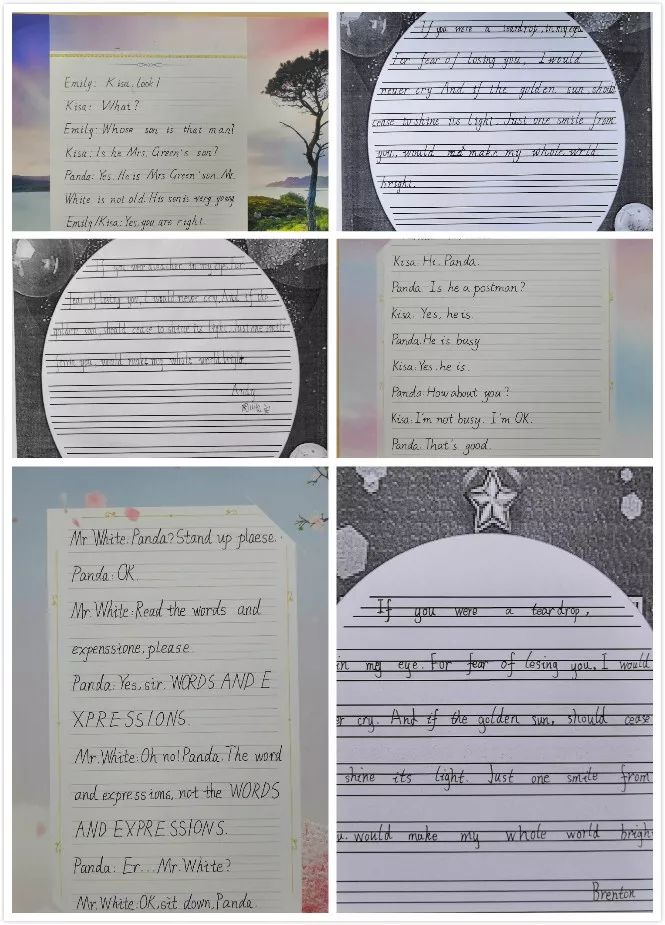 Emily: Kisa, look!
Kisa: What?
Emily: Whose son is that man?
Kisa: Is he Mrs. Green's son?
Panda: Yes. He is Mrs Green' son. Mr.
White is not old. His son is very young
Emily/Kisa: Yes, you are right.
If you were a teardrop, in my eye
For fear of losing you, I would
never cry And if the golden sun shoub
cease to shine its light. Just one smile from
you, would make my whole world
bright.
If you were a teardrop in my eye. For
fear of losing you, I would never cry. And if the
golden sun, should cease to shine its light. Just one smile
from you, would make my whole world bright.
Andy
Kisa: Hi. Panda.
Panda: Is he a postman?
Kisa: Yes, he is.
Panda: He is busy
Kisa: Yes. he is.
Panda: How about you?
Kisa: I'm not busy. I'm OK.
Panda: That's good.
Mr. White: Panda? Stand up plaese.
Panda: OK.
Mr. White: Read the words and
expenssione, please.
Panda: Yes, sir. WORDS AND E
XPRESSIONS.
Mr. White: Oh no! Panda. The word
and expressions, not the WORDS
AND EXPRESSIONS.
Panda: Er... Mr. White?
Mr. White: OK, sit down, Panda.
If you were a teardrop,
in my eye. For fear of lesing you, I would
er cry. And if the golden sun, should cease
shine its light. Just one smile from
u. would make my whole world brigh
Brenton